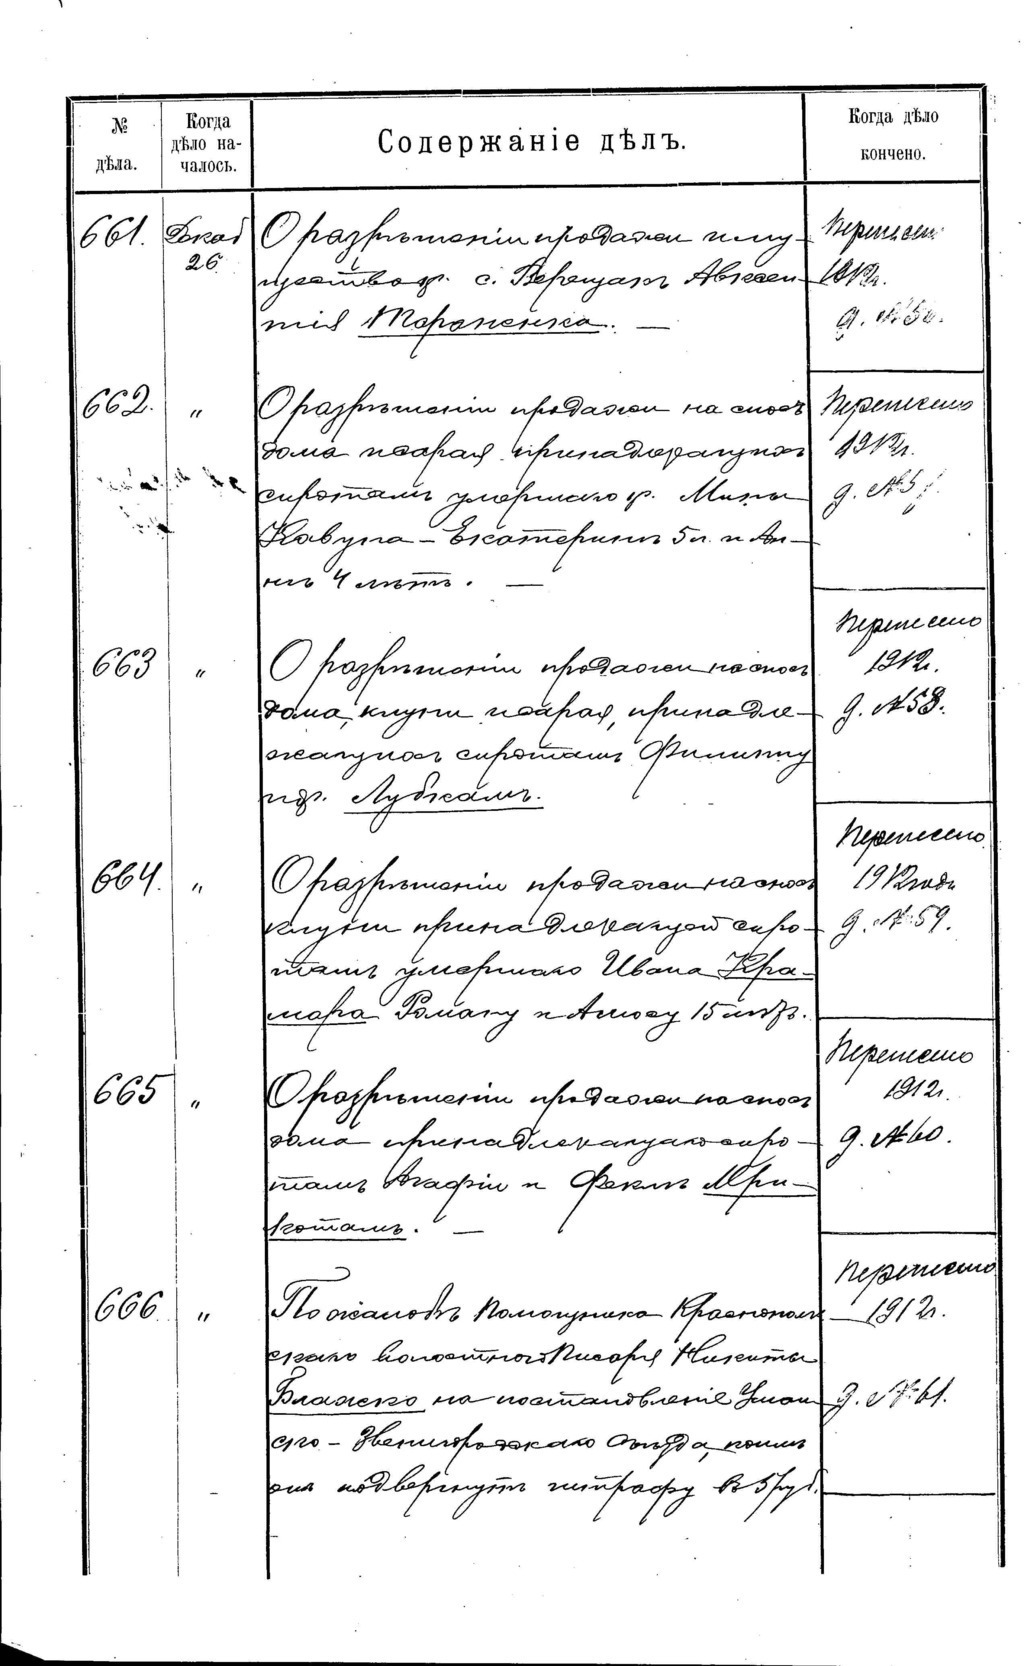 № дѣла.
Когда дѣло на-
чалось.
Содержаніе дѣлъ.
Когда дѣло
кончено.
661. Декаб О разрѣшеніи продажи иму-
26 щества кр. с. Верещакъ Авксен-
тія Тараненка. —
Перенесен
1912г.
д. №
662. " О разрѣшеніи продажи на сносъ
дома и сарая, принадлежащихъ
сиротамъ умершаго кр. Мины
Кавуна – Екатеринѣ 5 л. и Ан-
нѣ 4 лѣтъ. —
Перенесено
1912г.
д. №
663 " О разрѣшеніи продажи на сносъ
дома, клуни и сарая, принадле-
жащихъ сиротамъ Филиппу
и др. Лубкамъ.
Перенесено
1912г.
д. №58.
664. " О разрѣшеніи продажи на сносъ
клуни принадлежащей сиро-
тамъ умершаго Ивана Кра-
мара Роману и Амосу 15 лѣтъ.
Перенесено
1912 года
д. №59.
665 " О разрѣшеніи продажи на сносъ
дома принадлежащаго сиро-
тамъ Агафіи и Феклѣ Мри-
котамъ. —
Перенесено
1912г.
д. №60.
666 " По жалобѣ Помощника Краснополь
скаго волостного Писаря Никиты
Блажско на постановленіе Уман
ско-Звенигородскаго Съѣзда, коимъ
онъ подвергнутъ штрафу въ 5 руб.
Перенесено
1912г.
д. №61.